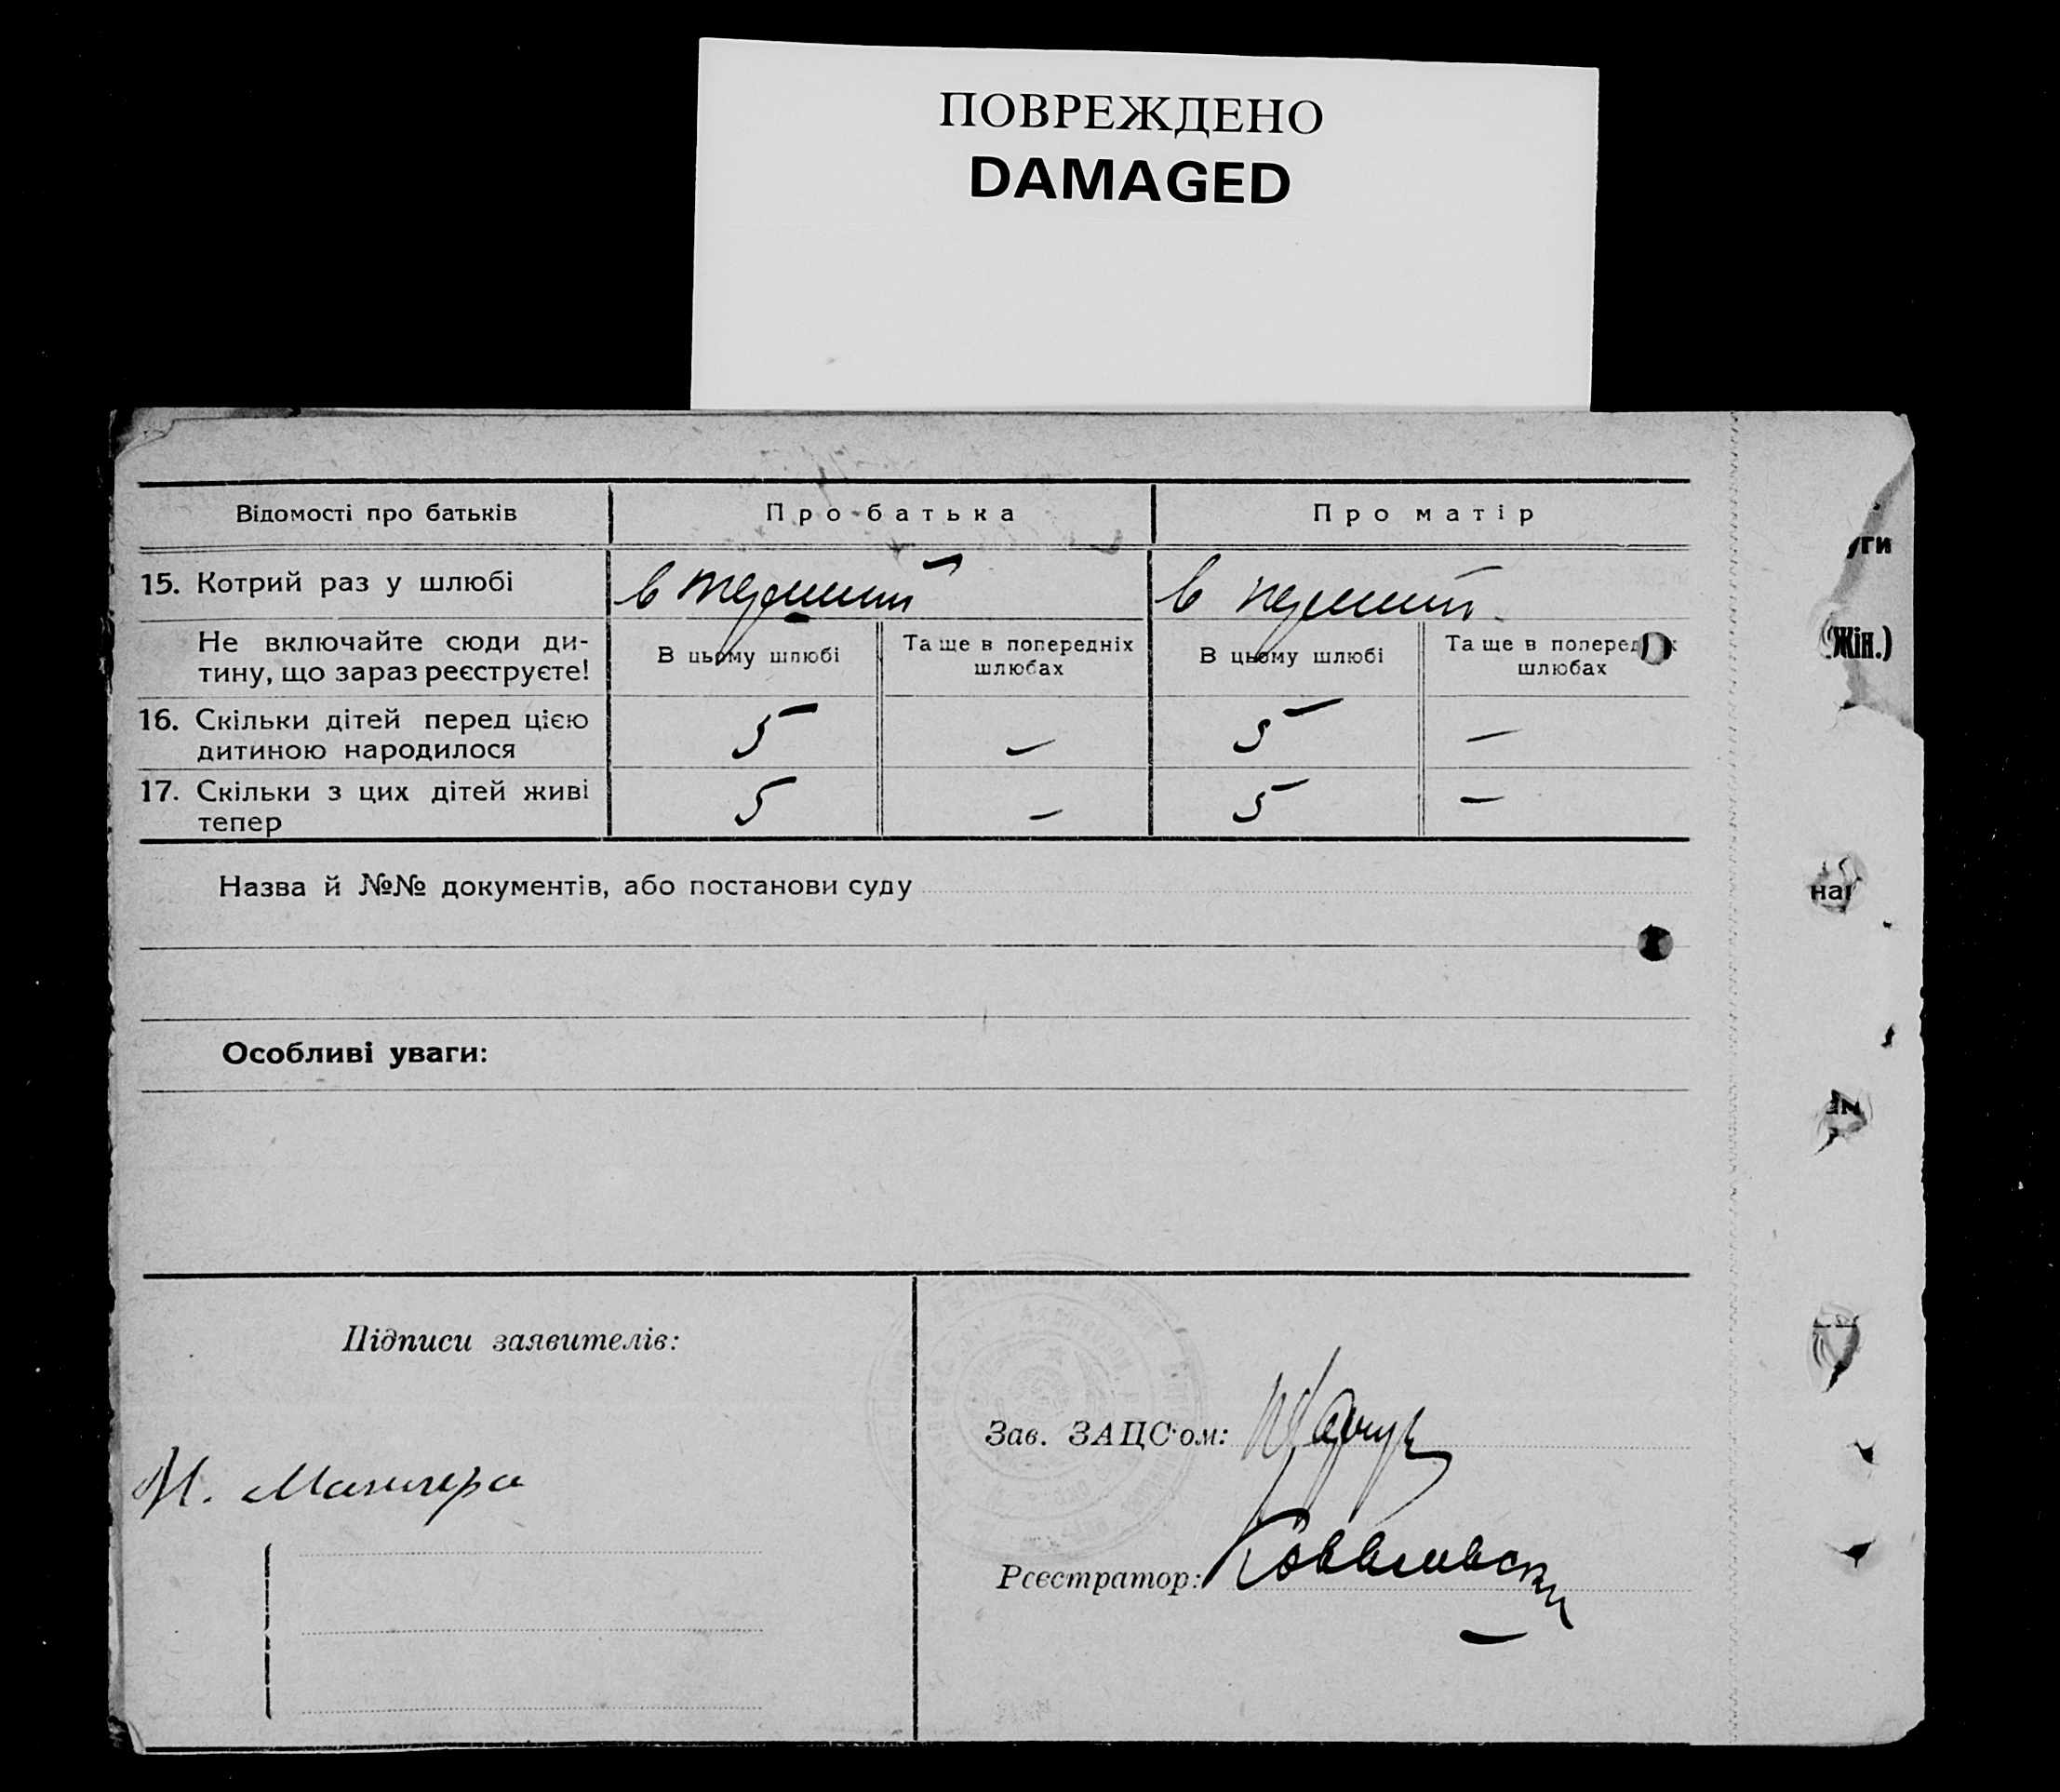 ПОВРЕЖДЕНО
DAMAGED
Відомості про батьків
Про батька
Про матір
15. Котрий раз у шлюбі
в перший
в перший
Не включайте сюди ди-
тину, що зараз реєструєте!
В цьому шлюбі
Та ще в попередніх
шлюбах
В цьому шлюбі
Та ще в поперед
шлюбах
16. Скільки дітей перед цією
дитиною народилося
5
—
5
—
17. Скільки з цих дітей живі
тепер
5
—
5
—
Назва й №№ документів, або постанови суду
Особливі уваги:
Підписи заявителів:
Зав. ЗАЦС'ом:
Реєстратор:
уги
(Жін.)